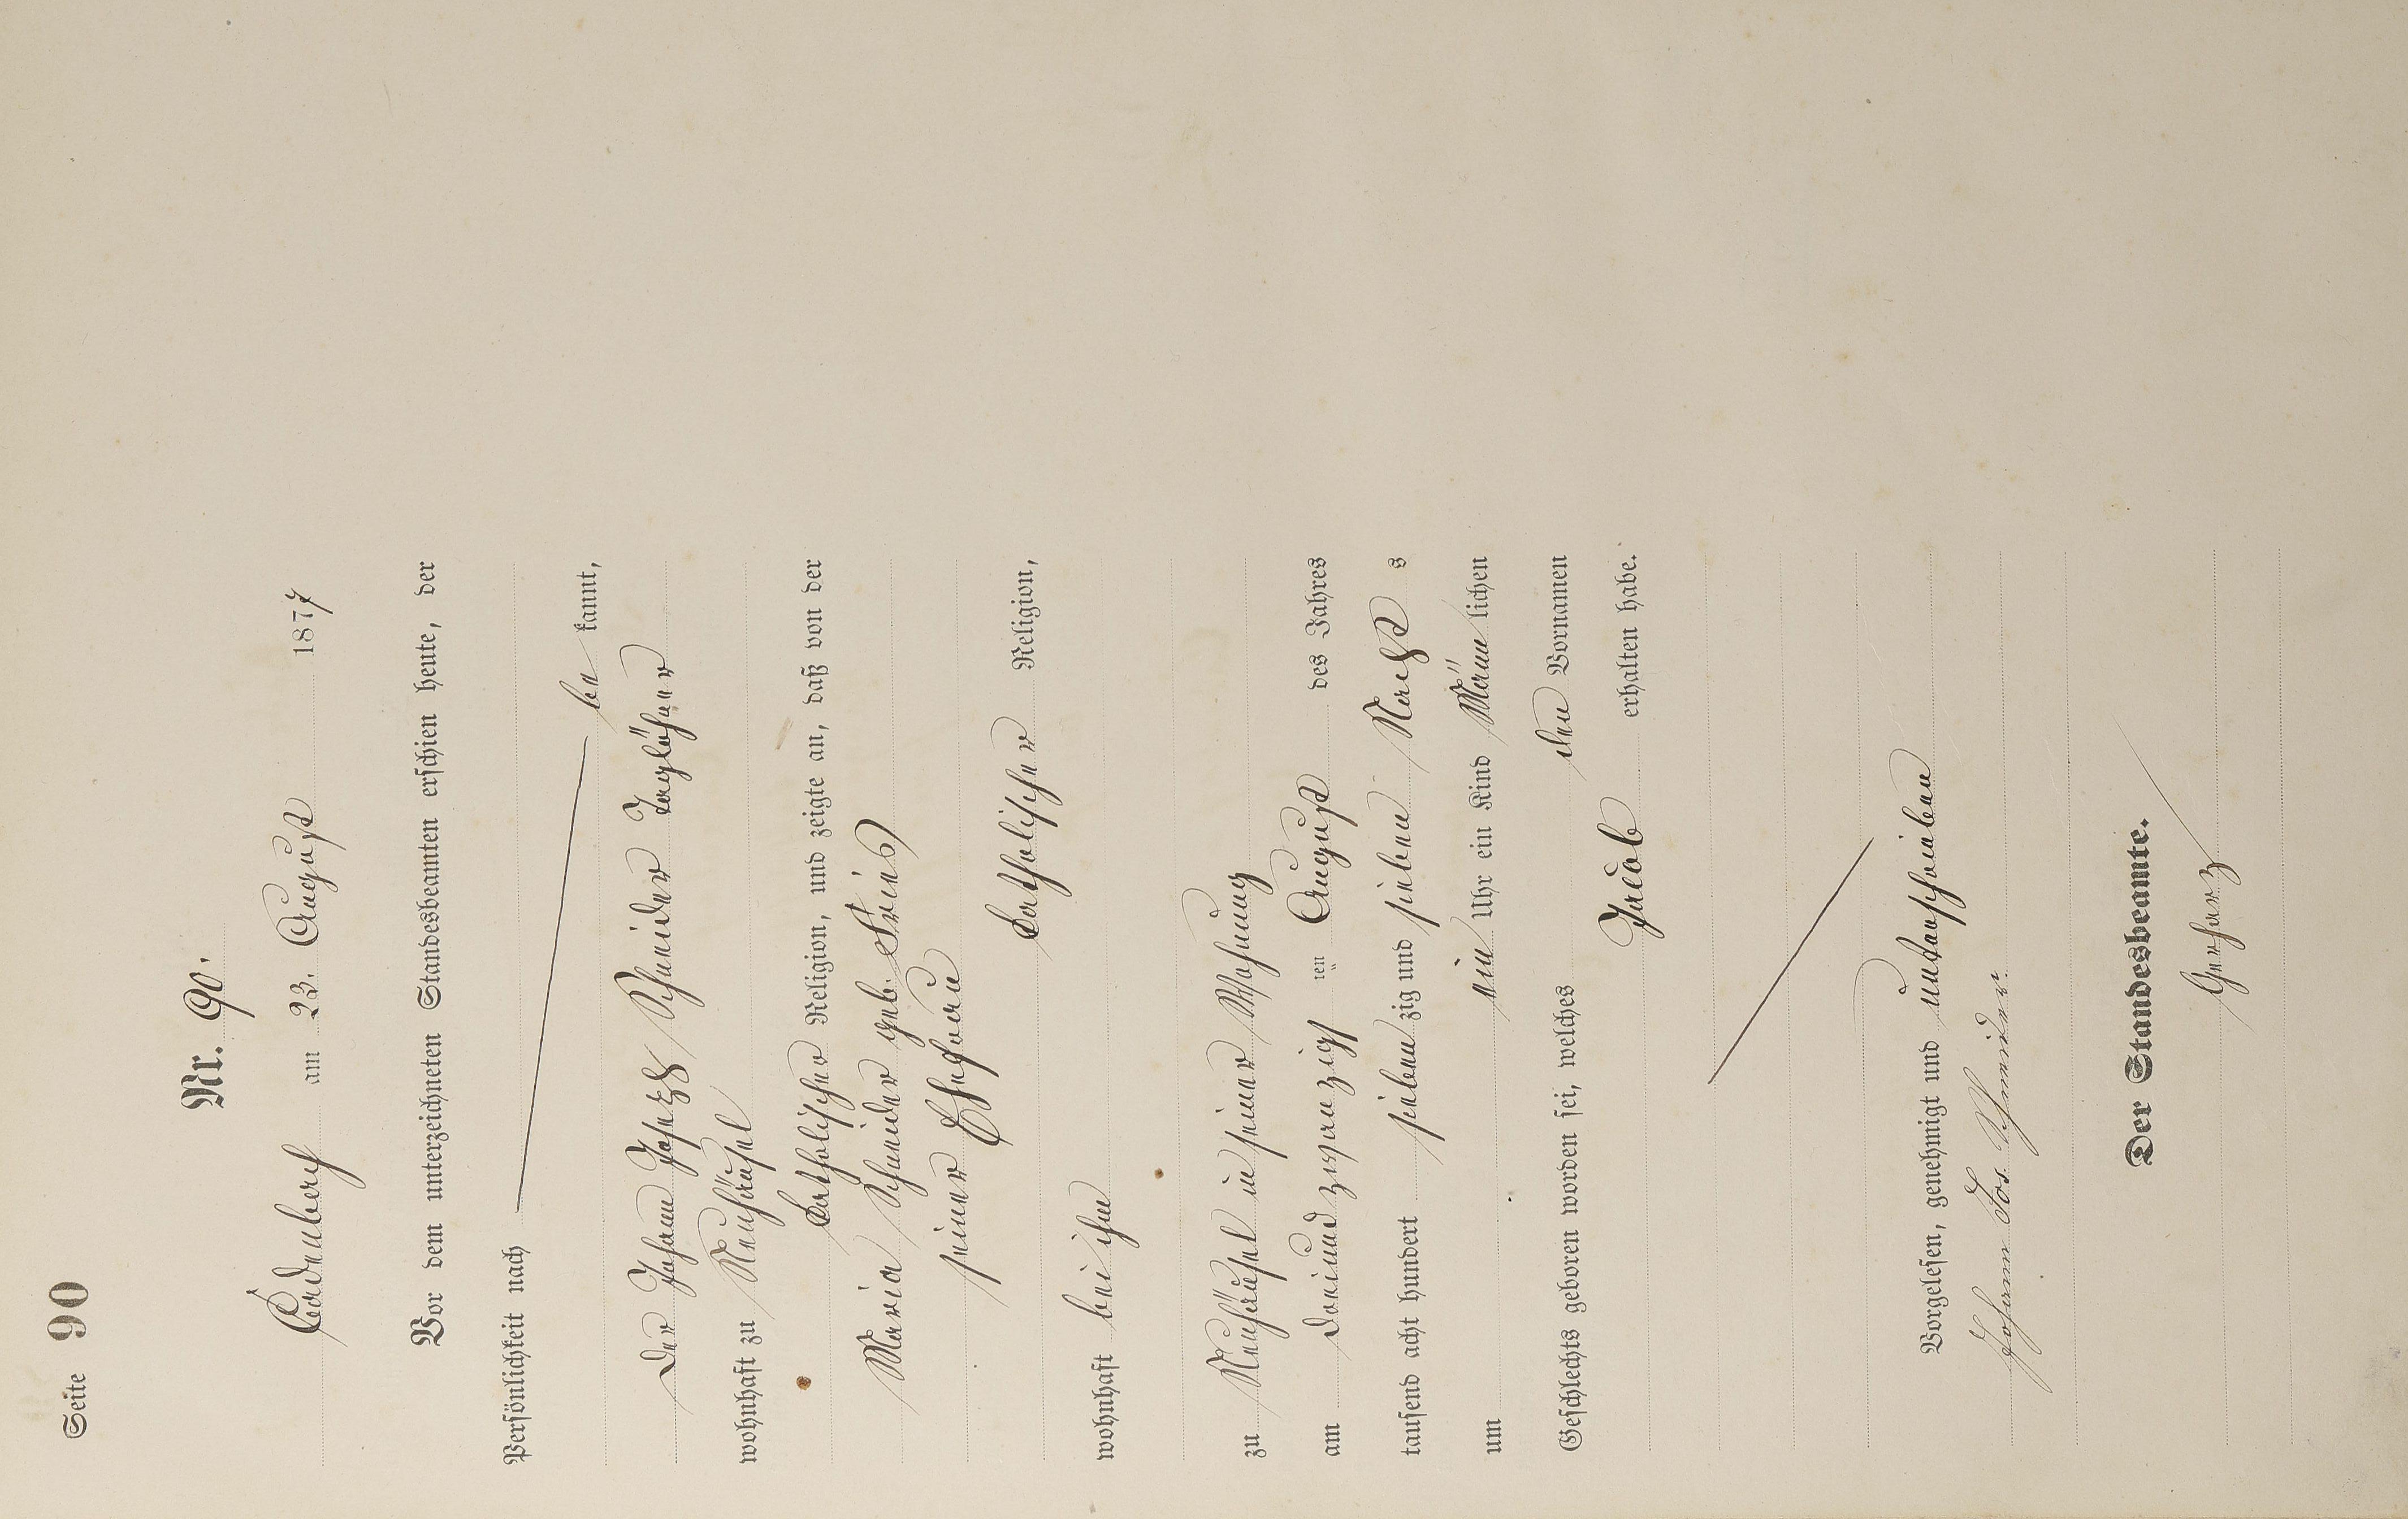 Seite 90
Nr. 90.
Cadenbach am 23. August 1877
Vor dem unterzeichneten Standesbeamten erschien heute, der
Persönlichkeit nach
be kannt,
der Johann Joseph Schneider Taglöhner
wohnhaft zu Neuhäusel
katholischer Religion, und zeigte an, daß von der
Maria Schneider geb. Fries
seiner Ehefrau
katholischer Religion,
wohnhaft bei ihm
zu Neuhäusel in seiner Wohnung
am dreiundzwanzigsten August des Jahres
tausend acht hundert sieben zig und sieben Nachts
um ein Uhr ein Kind Männlichen
Geschlechts geboren worden sei, welches den Vornamen
Jacob erhalten habe.
Vorgelesen, genehmigt und unterschrieben
Johann Jos. Schneider
Der Standesbeamte.
Gerharz